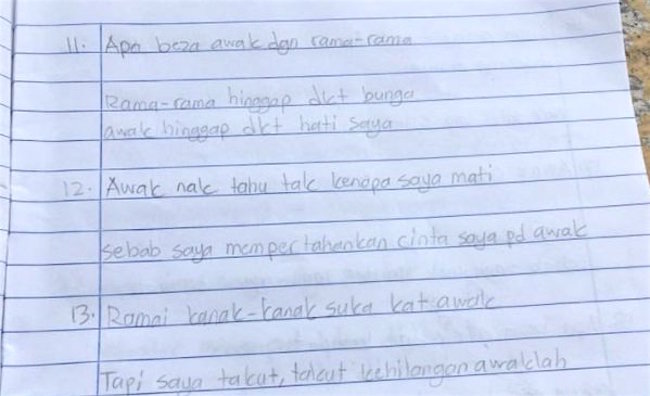 11. Apa beza awak dgn rama-rama
Rama-rama hinggap dkt bunga
awak hinggap dkt hati saya
12. Awak nak tahu tak kenapa saya mati
sebab saya mempertahankan cinta saya pd awak
13. Ramai kanak-kanak suka kat awak
Tapi saya takut, takut kehilangan awaklah